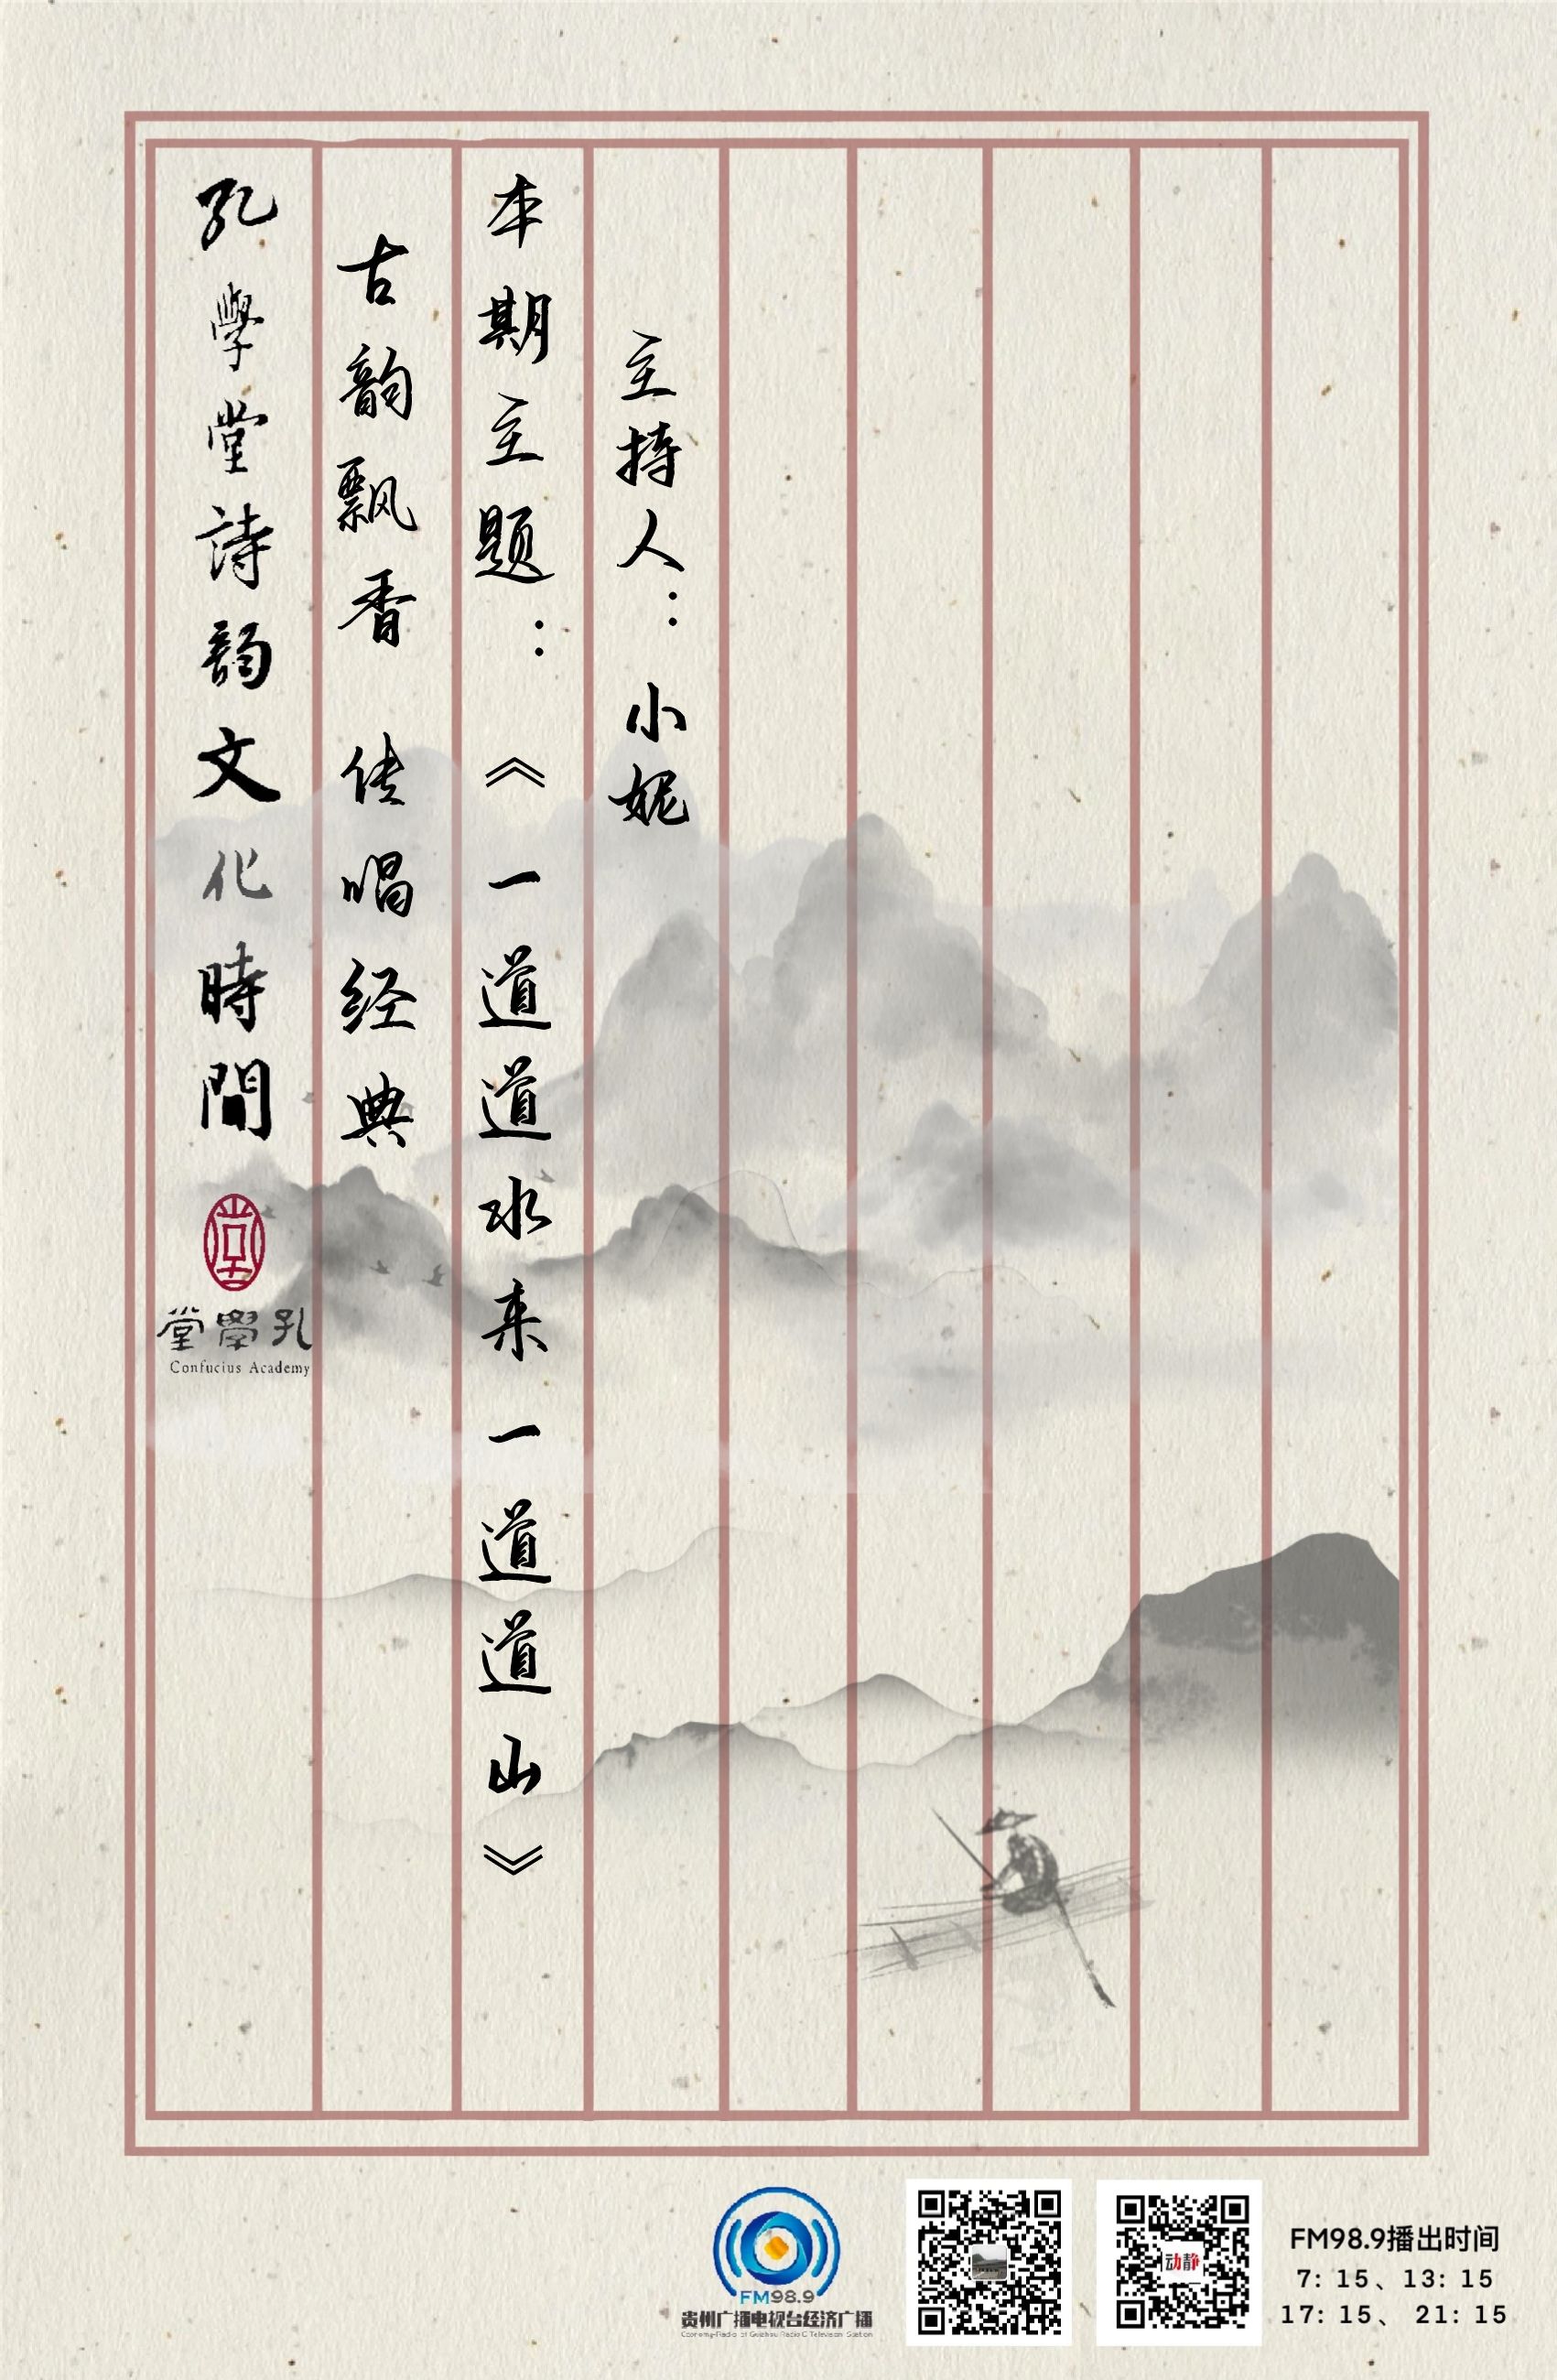 孔學堂詩韵文化時間
古韵飘香 传唱经典
本期主题：《一道道水来一道道山》
主持人：小妮
堂學孔
Confucius Academy
FM98.9
贵州广播电视台经济广播
动静
FM98.9播出时间
7: 15、13: 15
17: 15、 21: 15